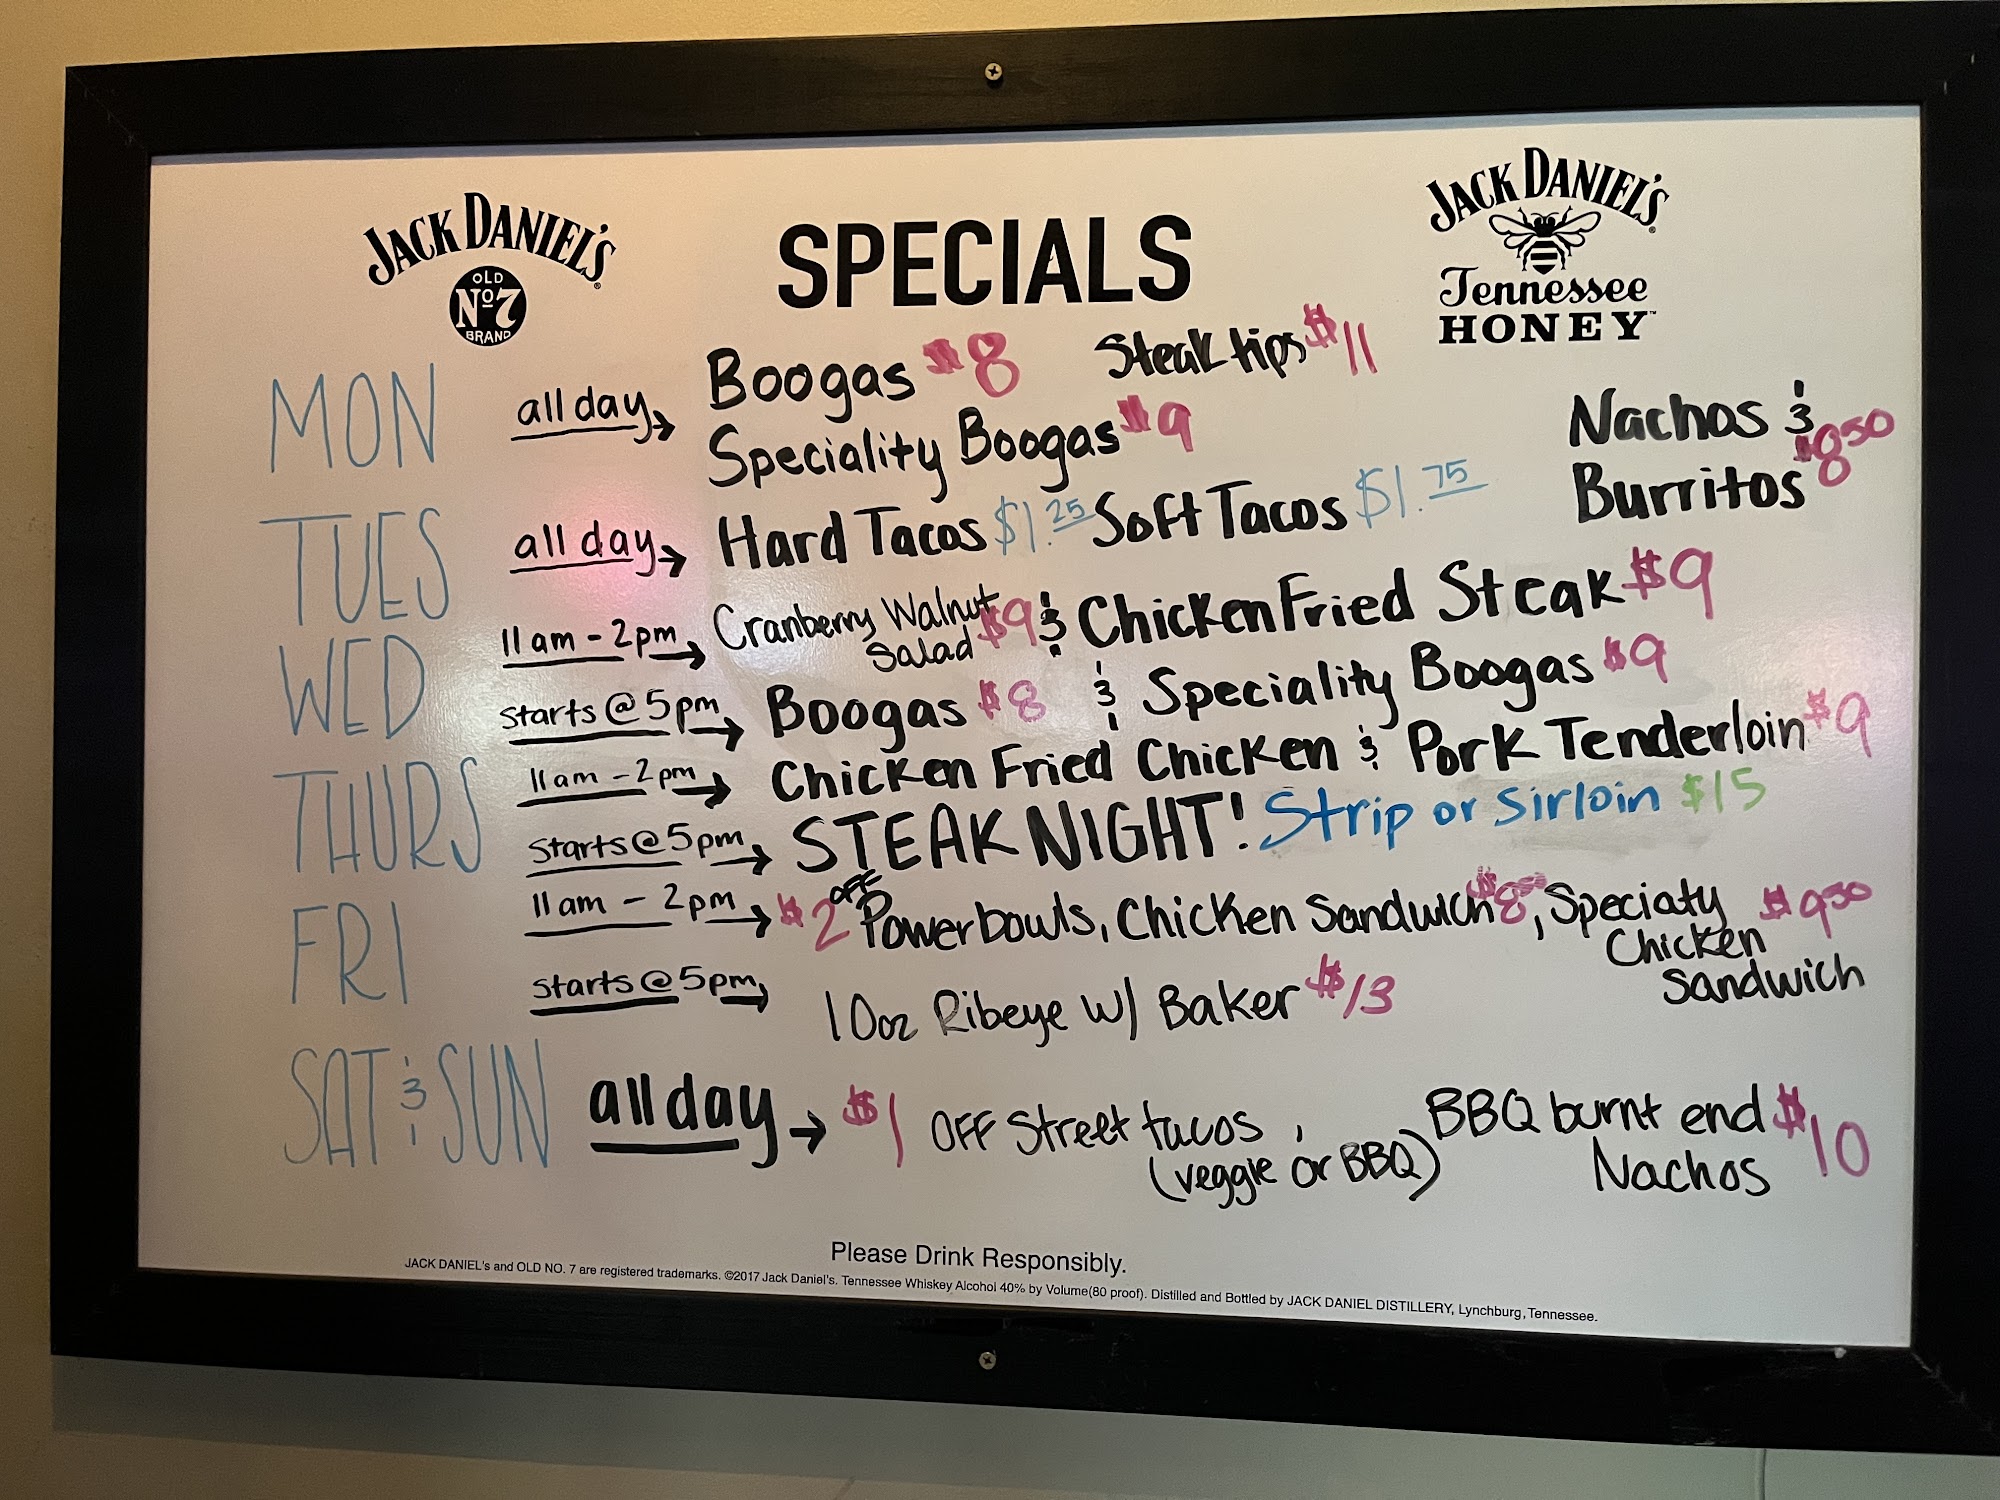 JACK DANIEL'S
OLD
Nº7
BRAND
SPECIALS
JACK DANIEL'S
Tennessee
HONEY™
MON all day → Boogas $8 Steak tips $11
Speciality Boogas $9
TUES all day → Hard Tacos $1.25 Soft Tacos $1.75 Nachos & Burritos $8.50
WED 11am - 2pm → Cranberry Walnut Salad $9 & Chicken Fried Steak $9
Starts @ 5pm → Boogas $8 & Speciality Boogas $9
THURS 11am - 2pm → Chicken Fried Chicken & Pork Tenderloin $9
Starts @ 5pm → STEAK NIGHT! Strip or Sirloin $15
FRI 11am - 2pm → $2 OFF Powerbowls, Chicken Sandwich $8.50, Specialty Chicken Sandwich $9.50
Starts @ 5pm → 10oz Ribeye w/ Baker $13
SAT & SUN all day → $1 OFF Street tacos, (veggie or BBQ) BBQ burnt end Nachos $10
Please Drink Responsibly.
JACK DANIEL's and OLD NO. 7 are registered trademarks. ©2017 Jack Daniel's. Tennessee Whiskey Alcohol 40% by Volume(80 proof). Distilled and Bottled by JACK DANIEL DISTILLERY, Lynchburg, Tennessee.